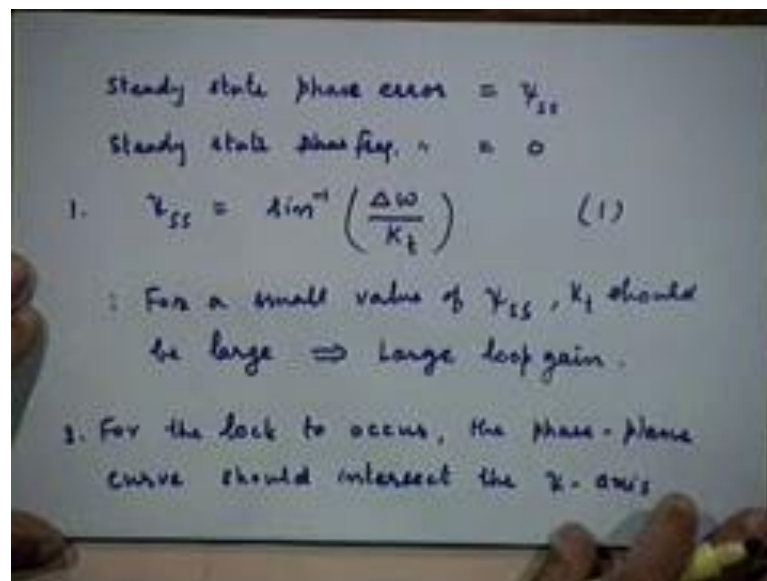 Steady state phase error = ψss
Steady state freq. " = 0
1. ψss = sin⁻¹ (Δω / Kt) (1)
: For a small value of ψss, Kt should
be large ⇒ Large loop gain.
2. For the lock to occur, the phase-plane
curve should intersect the ψ-axis